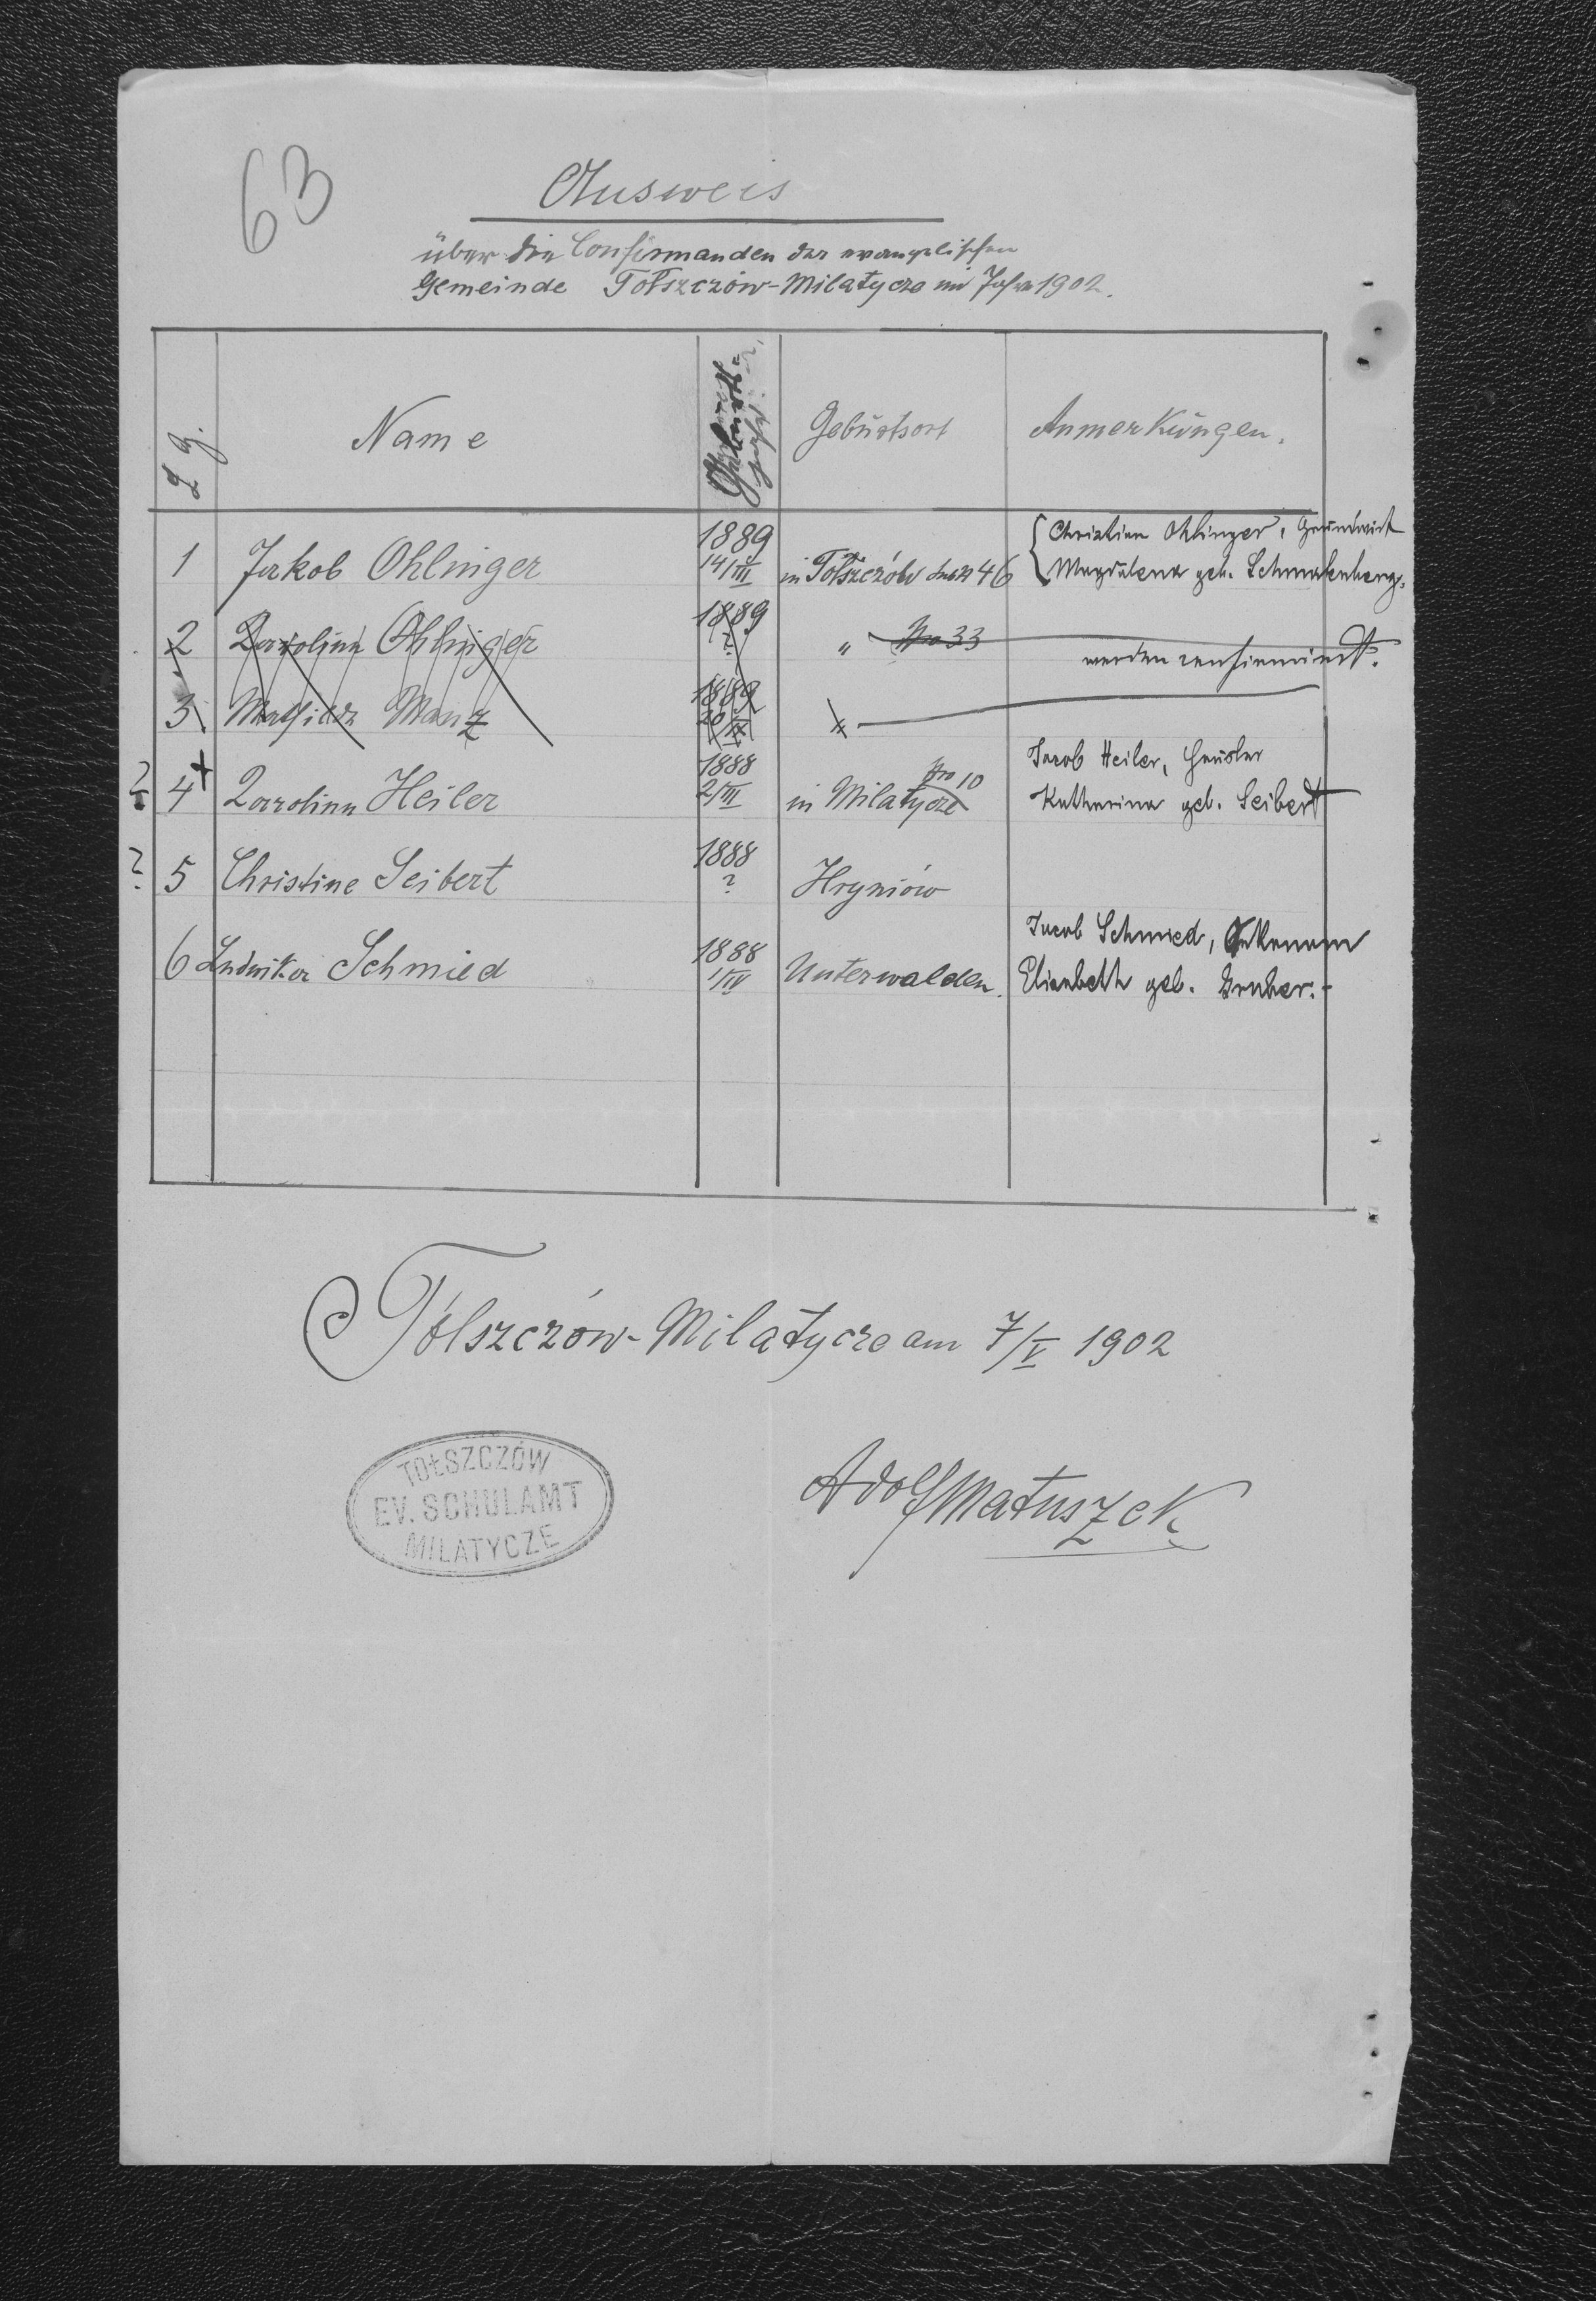 63
Ausweis
über die Confirmanden der evangelischen
Gemeinde Tołszczów-Milatycze im Jahre 1902.
Z
Name
Geburts-
jahr
Geburtsort
Anmerkungen.
1 Jakob Ohlinger 1889 14/III in Tołszczów 46 { Christian Ohlinger, Grundwirt
Magdalena geb. Schmalenberg.
2 Karolina Ohlinger 1889 ? " No 33
werden renfirmirt.
3 Mathilde Manz 1889 20/IX "
? 4 + Karolina Heiler 1888 2/III in Milatycze No 10 Jacob Heiler, Häusler
Katharina geb. Seibert
? 5 Christine Seibert 1888 ? Hryniów
6 Ludwika Schmied 1888 1/IV Unterwalden. Jacob Schmied, Oekonom
Elisabeth geb. Gruber.-
Tólszczów-Milatycze am 7/V 1902
TOŁSZCZÓW
EV. SCHULAMT
MILATYCZE
Adolf Matuszek